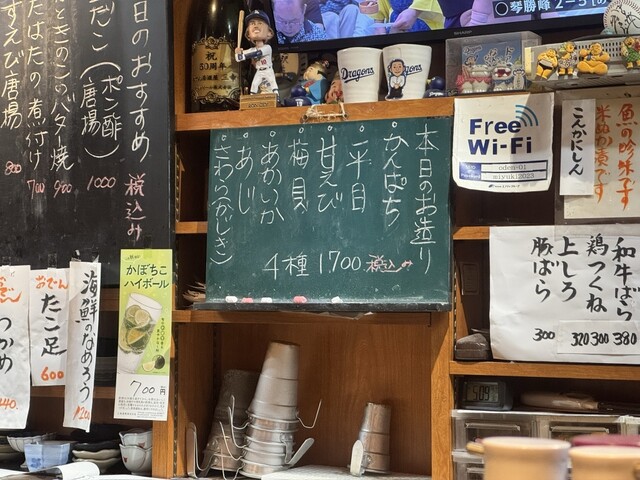 本日のおすすめ 税込み
だこ(ポン酢)
(唐揚)1000
ときのこのバタ焼 900
たはたの煮付け 700
すえび唐揚 800
祝
50周年
Dragons
Dragons
○琴勝峰
本日のお造り
かんぱち
平目
甘えび
梅貝
あかいか
あじ
さわら(かじき)
4種 1700 税込み
Free
Wi-Fi
魚の吟味子
米ぬか漬です
こんかにしん
和牛ばら 380
鶏つくね 300
上しろ 320
豚ばら 300
かぼちこ
ハイボール
700円
海鮮のなめろう
おでん
たこ足
600
つかめ
440.